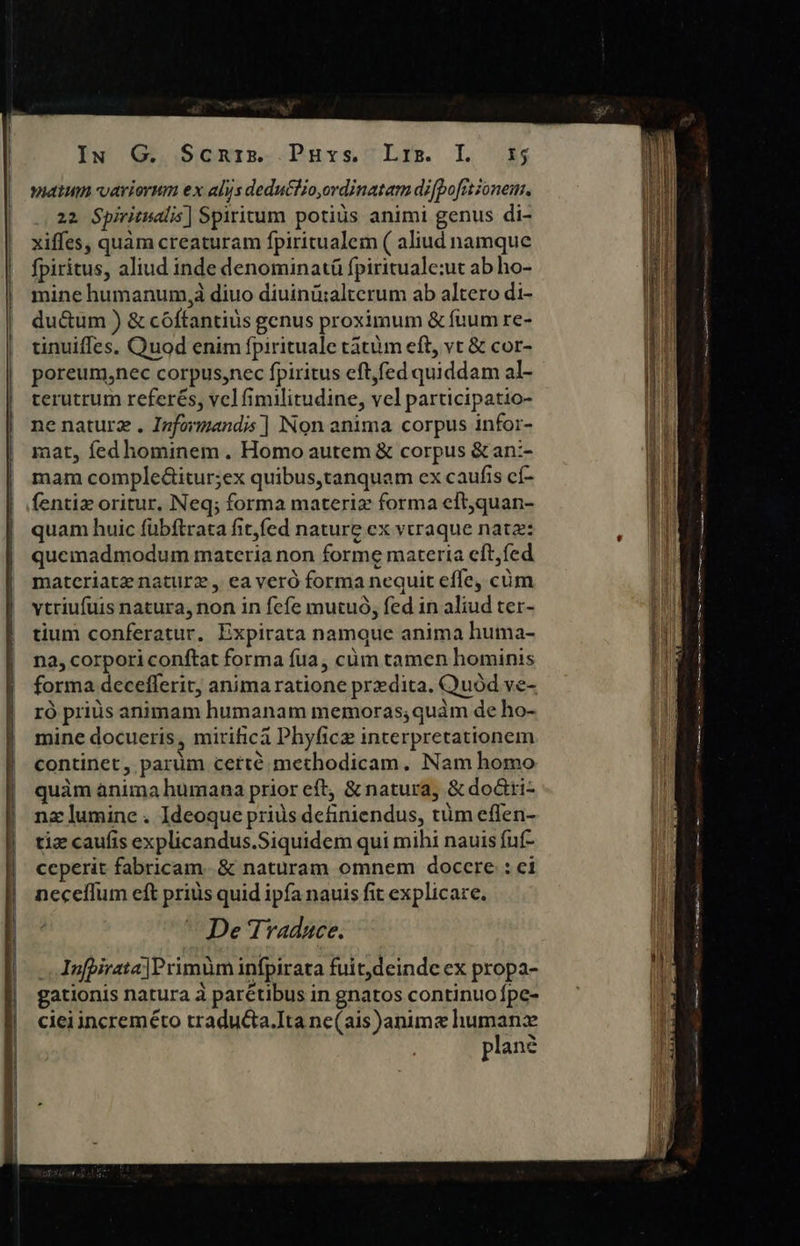 IN G. SCHIB. PHYS. LIB. I. 15
matum variorum ex alijs deductio, ordinatam diſpoſitionem.
22 Spiritualis] Spiritum potiùs animi genus di-
xiſſes, quàm creaturam ſpiritualem ( aliud namque
ſpiritus, aliud inde denominatū ſpirituale: ut ab ho-
mine humanum, à diuo diuinū: alterum ab altero di-
ductum ) & cōſtantiùs genus proximum & ſuum re-
tinuiſſes. Quod enim ſpirituale tātùm eſt, vt & cor-
poreum, nec corpus, nec ſpiritus eſt, ſed quiddam al-
terutrum referēs, vel ſimilitudine, vel participatio-
ne naturæ. Informandis] Non anima corpus infor-
mat, ſed hominem. Homo autem & corpus & ani-
mam complectitur; ex quibus, tanquam ex cauſis eſ-
ſentiæ oritur. Neq; forma materiæ forma eſt, quan-
quam huic ſubſtrata ſit, ſed nature ex vtraque natæ:
quemadmodum materia non forme materia eſt, ſed
materiatæ naturæ, ea verò forma nequit eſſe, cùm
vtriuſuis natura, non in ſeſe mutuò, ſed in aliud ter-
tium conferatur. Expirata namque anima huma-
na, corpori conſtat forma ſua, cùm tamen hominis
forma deceſſerit, anima ratione prædita. Quòd ve-
rò priùs animam humanam memoras, quàm de ho-
mine docueris, mirificā Phyſicæ interpretationem
continet, parùm certè methodicam. Nam homo
quàm anima humana prior eſt, & natura, & doctri-
næ lumine. Ideoque priùs definiendus, tùm eſſen-
tiæ cauſis explicandus. Siquidem qui mihi nauis ſuſ-
ceperit fabricam & naturam omnem docere: ei
neceſſum eſt priùs quid ipſa nauis ſit explicare.
De Traduce.
Inſpirata] Primùm inſpirata fuit, deinde ex propa-
gationis natura à parētibus in gnatos continuo ſpe-
ciei incremēto traducta. Ita ne (ais) animæ humanæ
planè